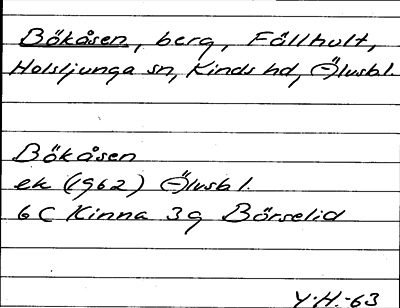 Bökåsen, berg, Fällhult,
Holsljunga sn, Kinds hd, Älvsb l.
Bökåsen
ek (1962) Älvsb l.
6 C Kinna 3 g Börselid
Y.H.-63